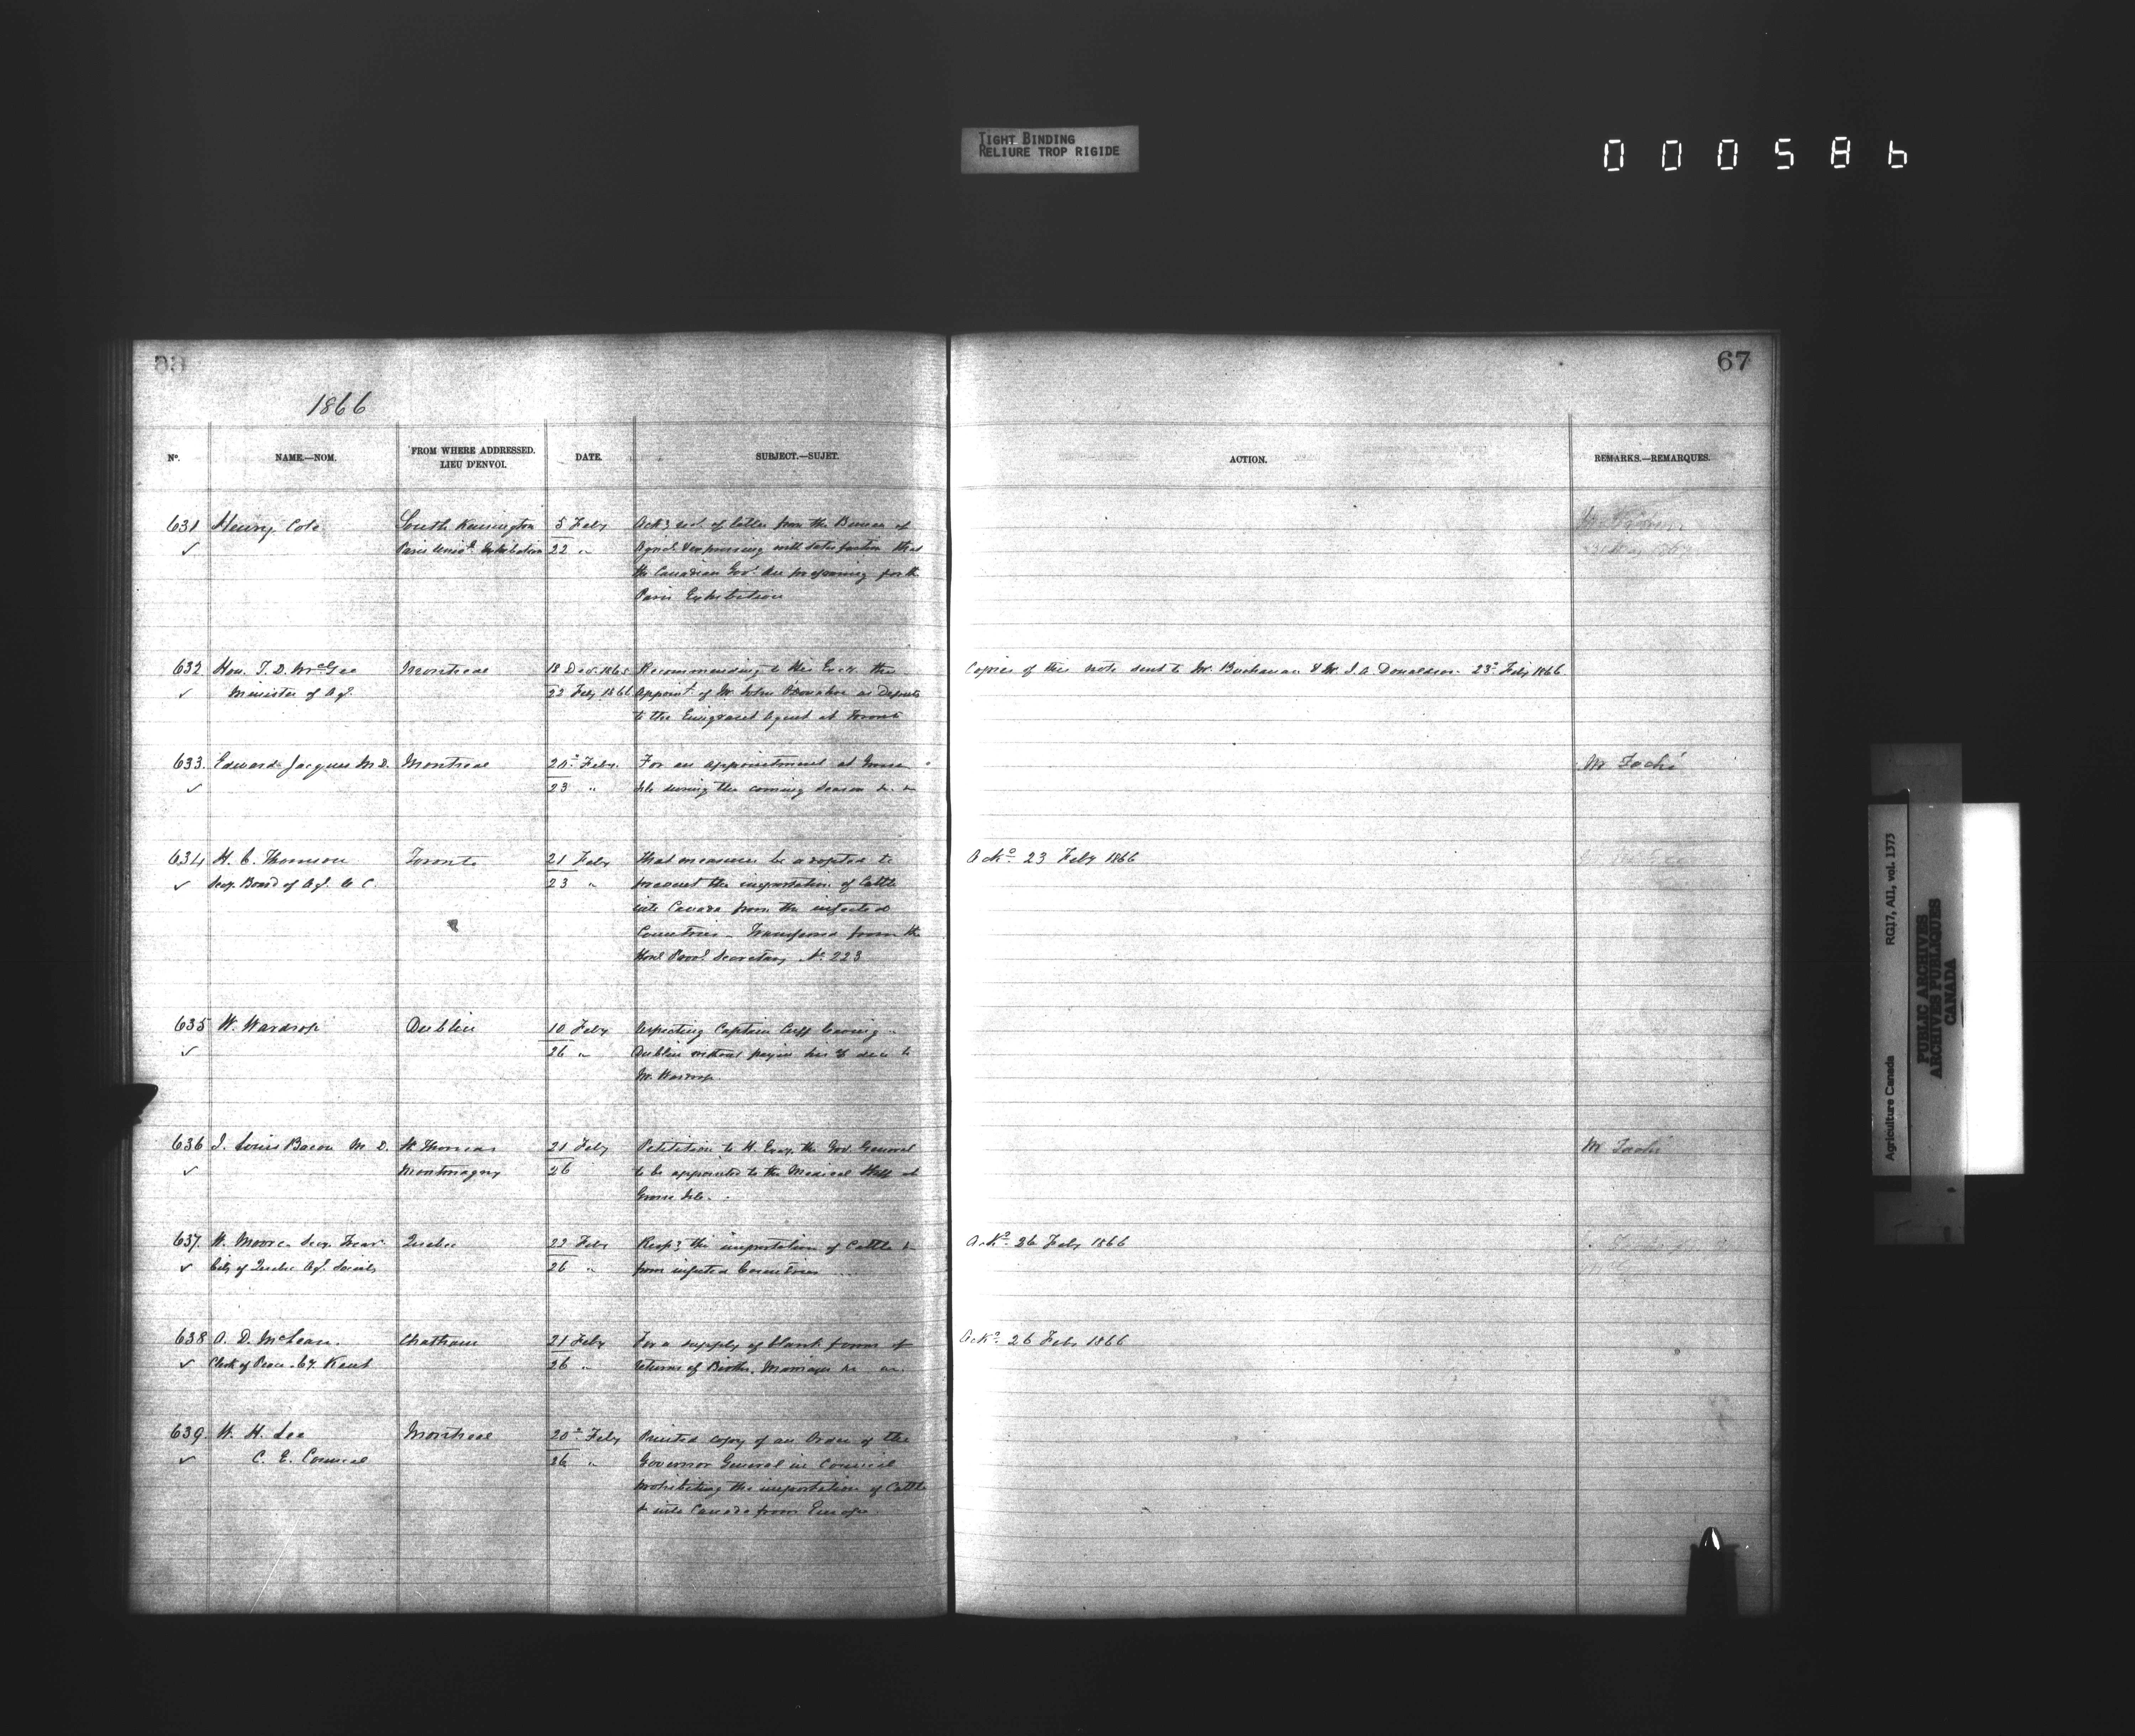 TIGHT BINDING
RELIURE TROP RIGIDE
000586
66
67
1866
No. NAME.—NOM. FROM WHERE ADDRESSED. LIEU D'ENVOI. DATE. SUBJECT.—SUJET. ACTION. REMARKS.—REMARQUES.
631 Henry Cole South Kensington 5 Feby Ackg rect. of letter from the Bureau of
✓ Paris Univl. Exhibition 22 " Agricl. & expressing with satisfaction that
the Canadian Govt. are preparing for the
Paris Exhibition
31 May 1867
632 Hon. T. D. McGee Montreal 18 Dec. 1865 Recommending to His Excy. the Copies of this note sent to Mr. Buchanan & Mr. J. A. Donaldson 23d Feby 1866
✓ Minister of Agl. 22 Feby 1866 Appoint. of Mr John O'Donohoe as Deputy
to the Emigrant Agent at Toronto
633. Edward Jacques M.D. Montreal 20th Feby. For an appointment at Grosse M Taché
✓ 23 " Isle during the coming Season &c. &c
634 H. C. Thomson Toronto 21 Feby that measures be adopted to Ackd 23 Feby 1866
✓ Secy. Board of Agl. U C. 23 " prevent the importation of Cattle
into Canada from the infected
Countries - Transferred from the
Honl Provl. Secretary No. 223
635 W. Wardrop Dublin 10 Feby Respecting Captain Cuff leaving
✓ 26 " Dublin without paying his due to
Mr. Wardrop.
636 J. Louis Bacon M. D. St Thomas 21 Feby Petition to H. Excy. the Gov. General M Taché
✓ Montmagny 26 to be appointed to the Medical Staff at
Grosse Isle.
637. W. Moore Secy. Trear. Quebec 22 Feby Respg the importation of Cattle &c Ackd. 26 Feby 1866
✓ City of Quebec Agl. Society 26 " from infected Countries
638 A. D. McLean. Chatham 21 Feby For a supply of blank forms of Ackd. 26 Feby 1866
✓ Clerk of Peace. Cy. Kent 26 " returns of Births, Marriages &c &c.
639. W. H. Lee Montreal 20th Feby Printed copy of an Order of the
✓ C. E. Council 26 " Governor General in Council
prohibiting the importation of Cattle
&c into Canada from Europe.
Agriculture Canada RG17, AII, vol. 1373
PUBLIC ARCHIVES
ARCHIVES PUBLIQUES
CANADA